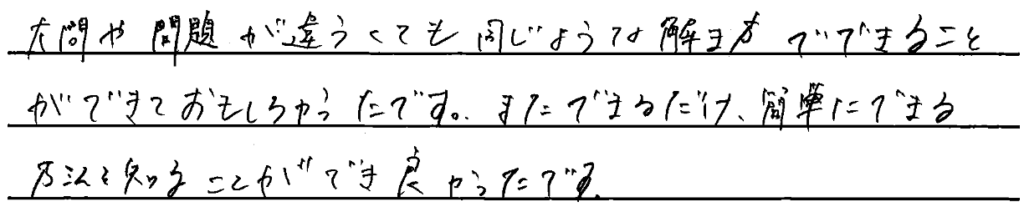 大問や問題が違うくても同じような解き方でできること
ができておもしろかったです。またできるだけ、簡単にできる
方法を知ることができ良かったです。